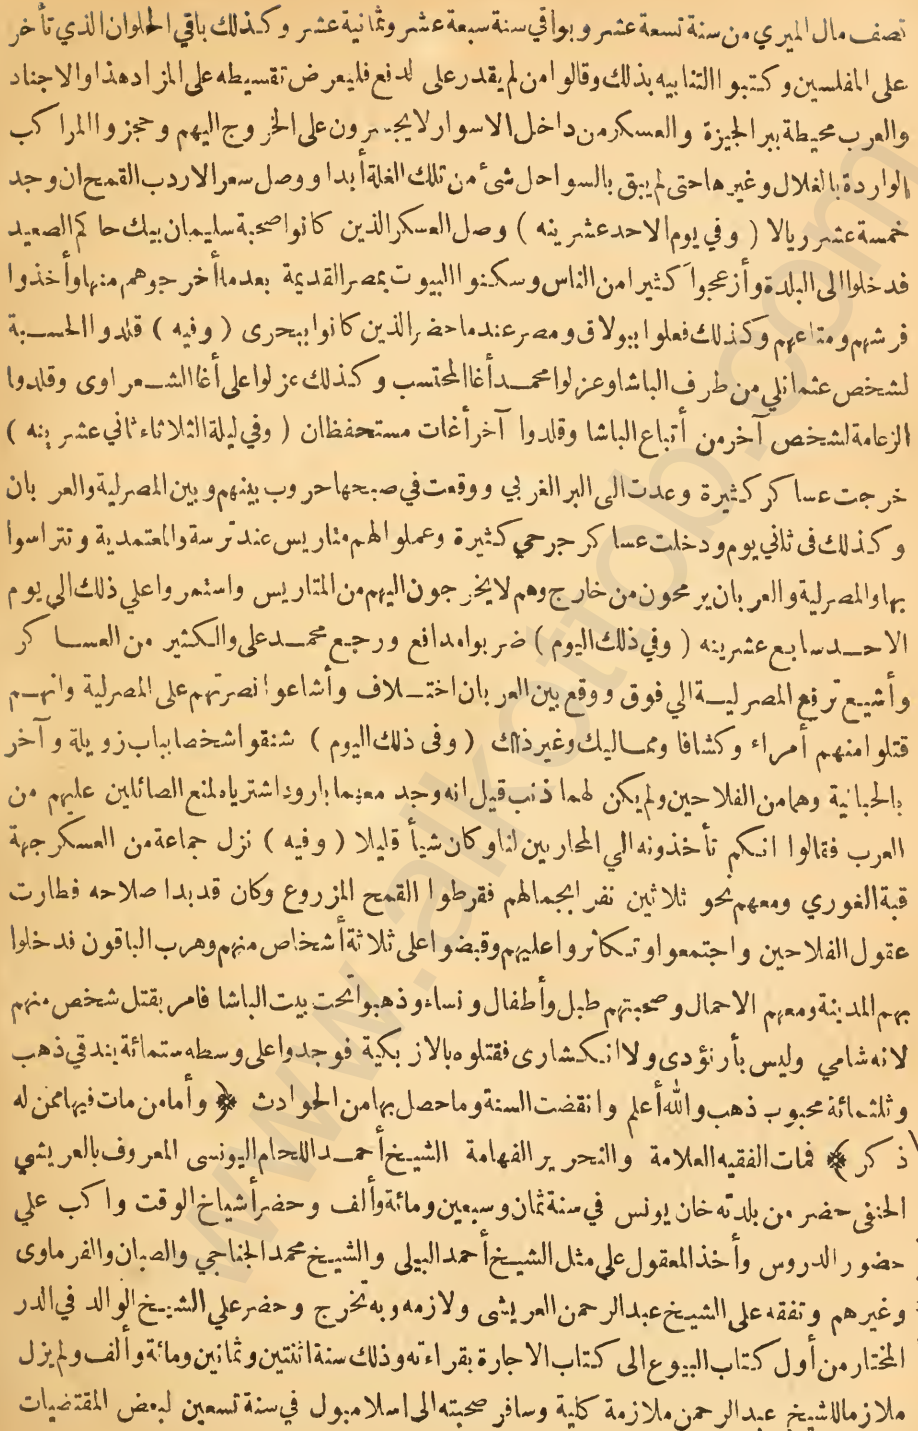 نصف مال الميري من سنة تسعة عشر وبواقي سنة سبعة عشر وثمانية عشر وكذلك باقي الحلوان الذي تأخر
على المفلسين وكتبوا التنابيه بذلك وقالوا من لم يقدر على لدفع فليعرض تقسيطه على المزاد هذا والاجناد
والعرب محيطة ببر الجيزة والعسكر من داخل الاسوار لايجسرون على الخروج اليهم وحجزوا المراكب
الواردة بالغلال وغيرها حتى لم يبق بالسواحل شئ من تلك الغلة أبدا ووصل سعر الاردب القمح ان وجد
خمسة عشر ريالا ( وفي يوم الاحد عشرينه ) وصل العسكر الذين كانوا صحبة سليمان بيك حاكم الصعيد
فدخلوا الى البلدة وأزعجوا كثيرا من الناس وسكنوا البيوت بمصر القديمة بعد ما أخرجوهم منها وأخذوا
فرشهم ومتاعهم وكذلك فعلوا ببولاق ومصر عند ما حضر الذين كانوا ببحرى ( وفيه ) قلدوا الحسبة
لشخص عثمانلي من طرف الباشا وعزلوا محمد أغا المحتسب وكذلك عزلوا على أغا الشعراوى وقلدوا
الزعامة لشخص آخر من أتباع الباشا وقلدوا آخر أغات مستحفظان ( وفي ليلة الثلاثاء ثاني عشرينه )
خرجت عساكر كثيرة وعدت الى البر الغربي ووقعت في صبحها حروب بينهم وبين المصرلية والعربان
وكذلك فى ثاني يوم ودخلت عساكر جرحي كثيرة وعملوا لهم متاريس عند ترسة والمعتمدية وتتراسوا
بها والمصرلية والعربان يرمحون من خارج وهم لايخرجون اليهم من المتاريس واستمروا علي ذلك الي يوم
الاحد سابع عشرينه ( وفي ذلك اليوم ) ضربوا مدافع ورجع محمد على والكثير من العساكر
وأشيع ترفع المصرلية الي فوق ووقع بين العربان اختلاف وأشاعوا نصرتهم على المصرلية وانهم
قتلوا منهم أمراء وكشافا ومماليك وغير ذلك ( وفى ذلك اليوم ) شنقوا شخصا بباب زويلة وآخر
بالحبانية وهما من الفلاحين ولم يكن لهما ذنب قيل انه وجد معهما بارود اشترياه لمنع الصائلين عليهم من
العرب فقالوا انكم تأخذونه الي المحاربين لنا وكان شيأ قليلا ( وفيه ) نزل جماعة من العسكر جهة
قبة الغوري ومعهم نحو ثلاثين نفر ابجمالهم فقرطوا القمح المزروع وكان قد بدا صلاحه فطارت
عقول الفلاحين واجتمعوا وتكاثروا عليهم وقبضوا على ثلاثة أشخاص منهم وهرب الباقون فدخلوا
بهم المدينة ومعهم الاحمال وصحبتهم طبل وأطفال ونساء وذهبوا تحت بيت الباشا فامر بقتل شخص منهم
لانه شامي وليس بأرنؤدى ولا انكشارى فقتلوه بالازبكية فوجدوا على وسطه ستمائة بندقي ذهب
وثلثمائة محبوب ذهب والله أعلم وانقضت السنة وما حصل بها من الحوادث ﴿ وأما من مات فيها ممن له
ذكر ﴾ فمات الفقيه العلامة والنحرير الفهامة الشيخ أحمد اللحام اليونسى المعروف بالعريشي
الحنفى حضر من بلدته خان يونس في سنة ثمان وسبعين ومائة وألف وحضر أشياخ الوقت واكب علي
حضور الدروس وأخذ المعقول علي مثل الشيخ أحمد البيلى والشيخ محمد الجناجي والصبان والفرماوى
وغيرهم وتفقه على الشيخ عبد الرحمن العريشى ولازمه وبه تخرج وحضر علي الشيخ الوالد في الدر
المختار من أول كتاب البيوع الى كتاب الاجارة بقراءته وذلك سنة اثنتين وثمانين ومائة وألف ولم يزل
ملازما للشيخ عبد الرحمن ملازمة كلية وسافر صحبته الى اسلامبول في سنة تسعين لبعض المقتضيات